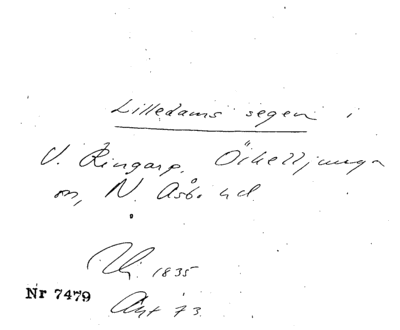 Lilledams segen i
V. Ringarp, Örkelljunga
sn, N. Åsbo hd
1835
Nr 7479
Avt 73